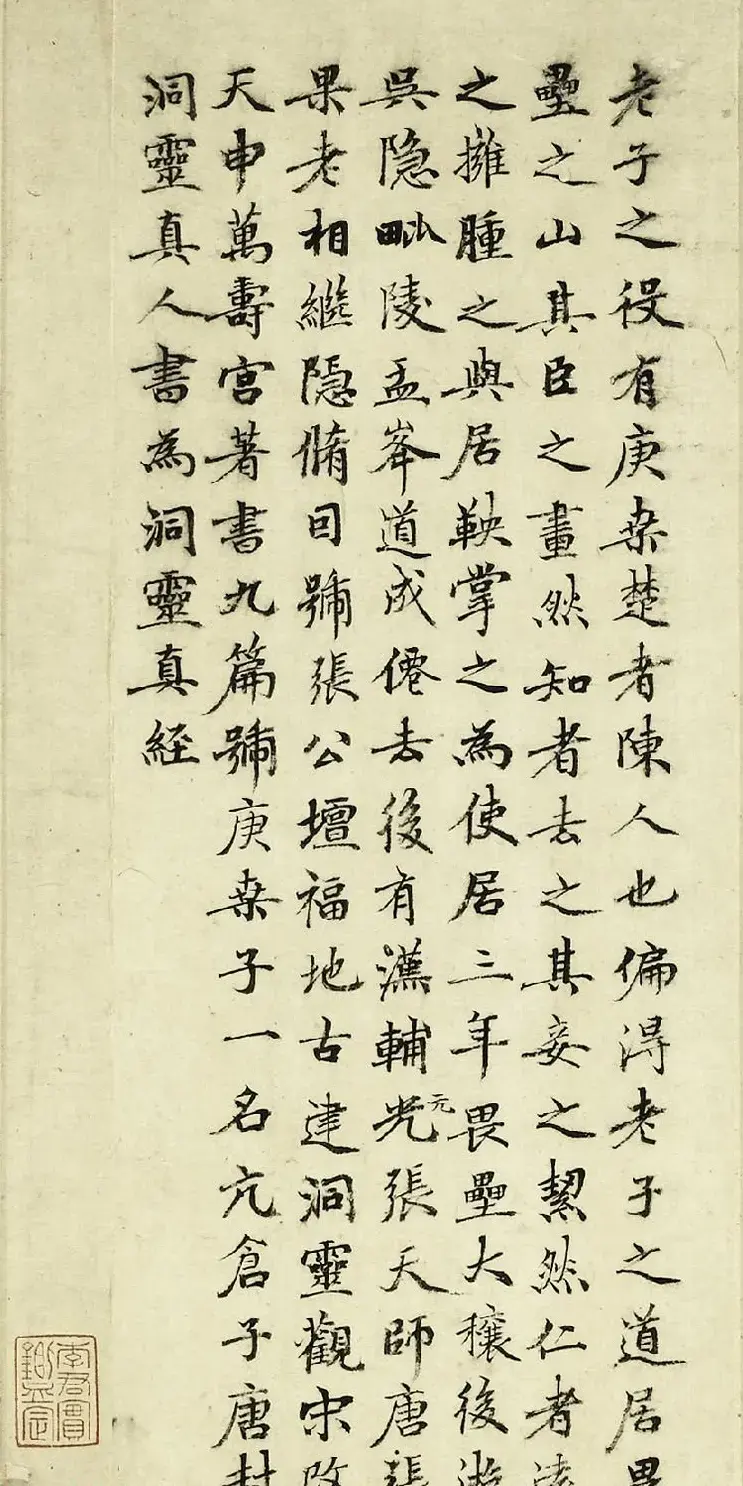 老子之役有庚桒楚者陳人也偏淂老子之道居畏
壘之山其臣之畫然知者去之其妾之絜然仁者遠
之擁腫之與居鞅掌之為使居三年畏壘大穰後遊
吳隐毗陵孟峯道成僊去後有漢輔光元張天師唐張
果老相繼隠脩囙號張公壇福地古建洞靈觀宋改
天申萬壽宮著書九篇號庚桒子一名亢倉子唐封
洞靈真人書為洞靈真經
李君實鑒定